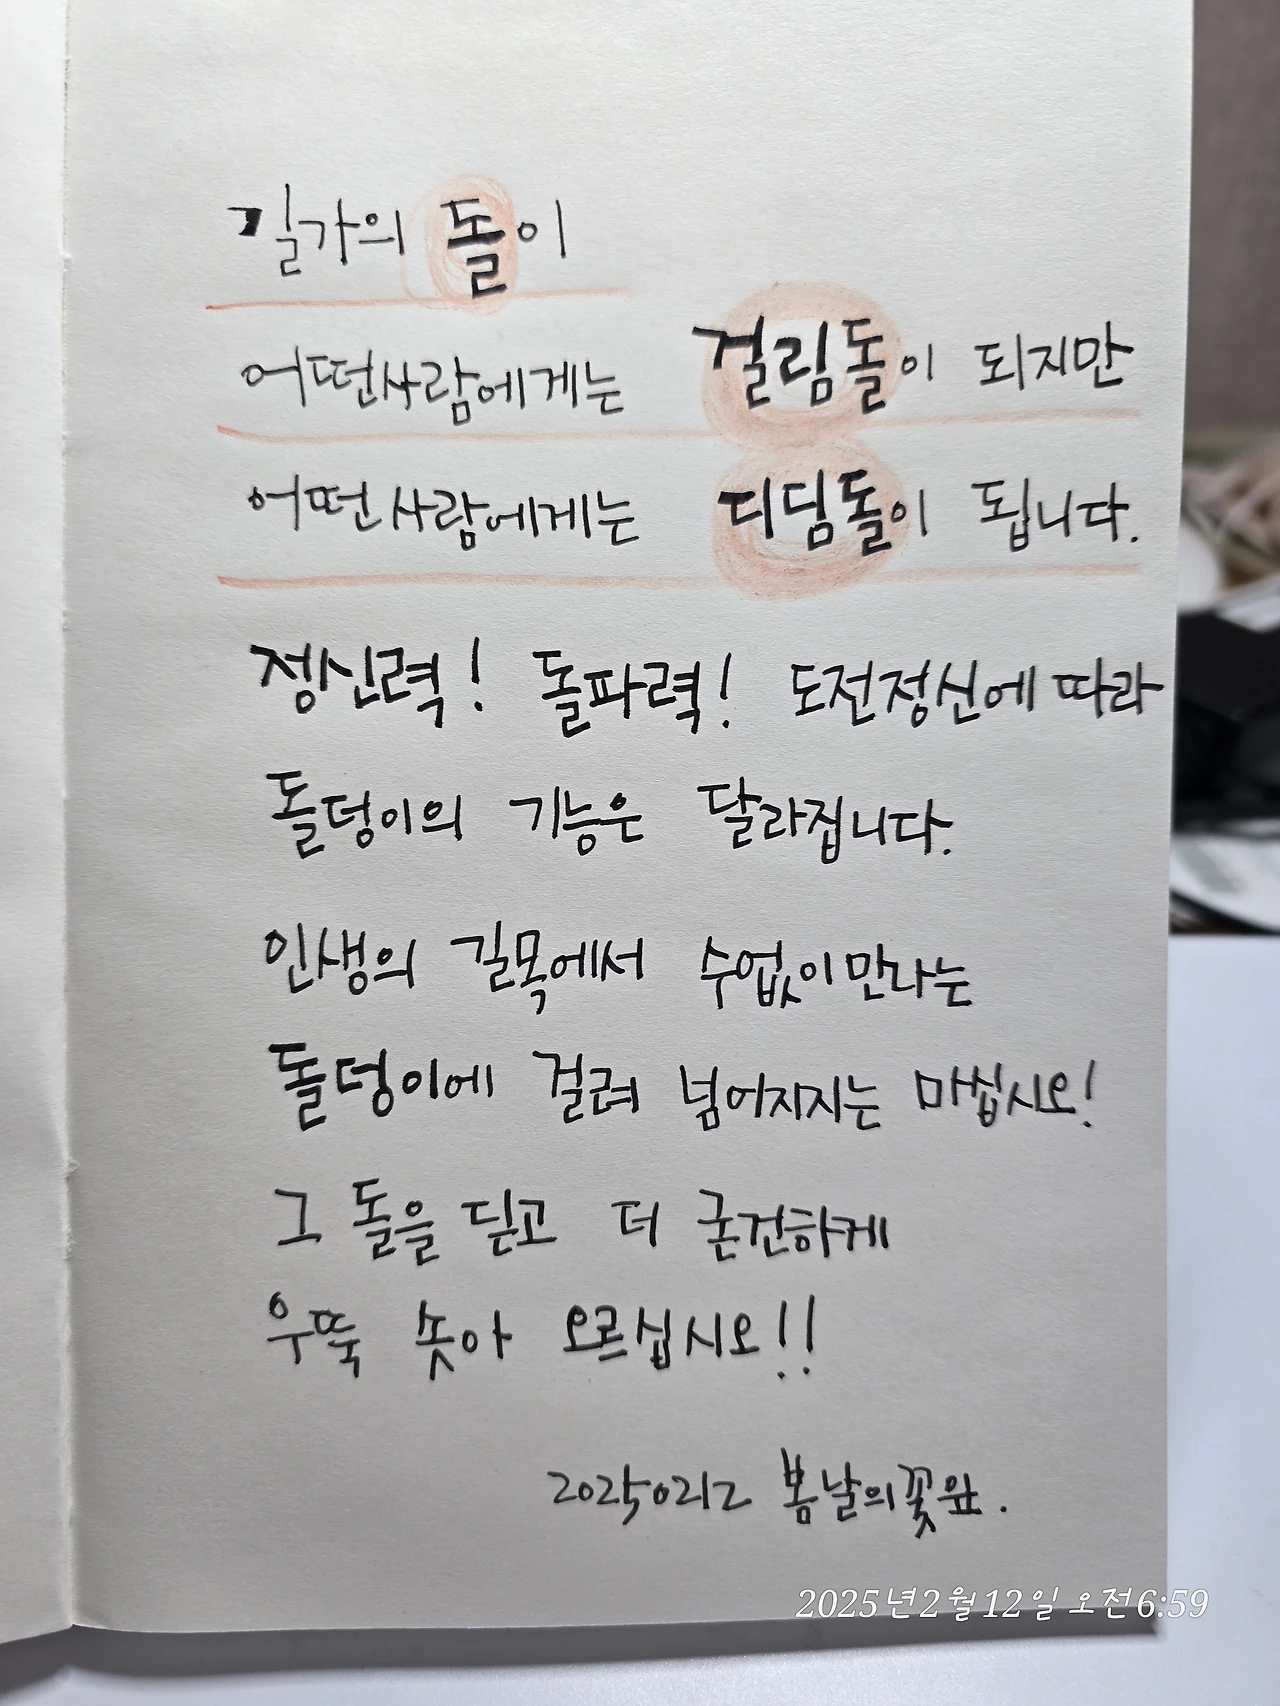 길가의 돌이
어떤사람에게는 걸림돌이 되지만
어떤사람에게는 디딤돌이 됩니다.
정신력! 돌파력! 도전정신에 따라
돌덩이의 기능은 달라집니다.
인생의 길목에서 수없이만나는
돌덩이에 걸려 넘어지지는 마십시오!
그 돌을 딛고 더 굳건하게
우뚝 솟아 오르십시오!!
20250212 봄날의꽃잎.
2025년2월12일 오전6:59